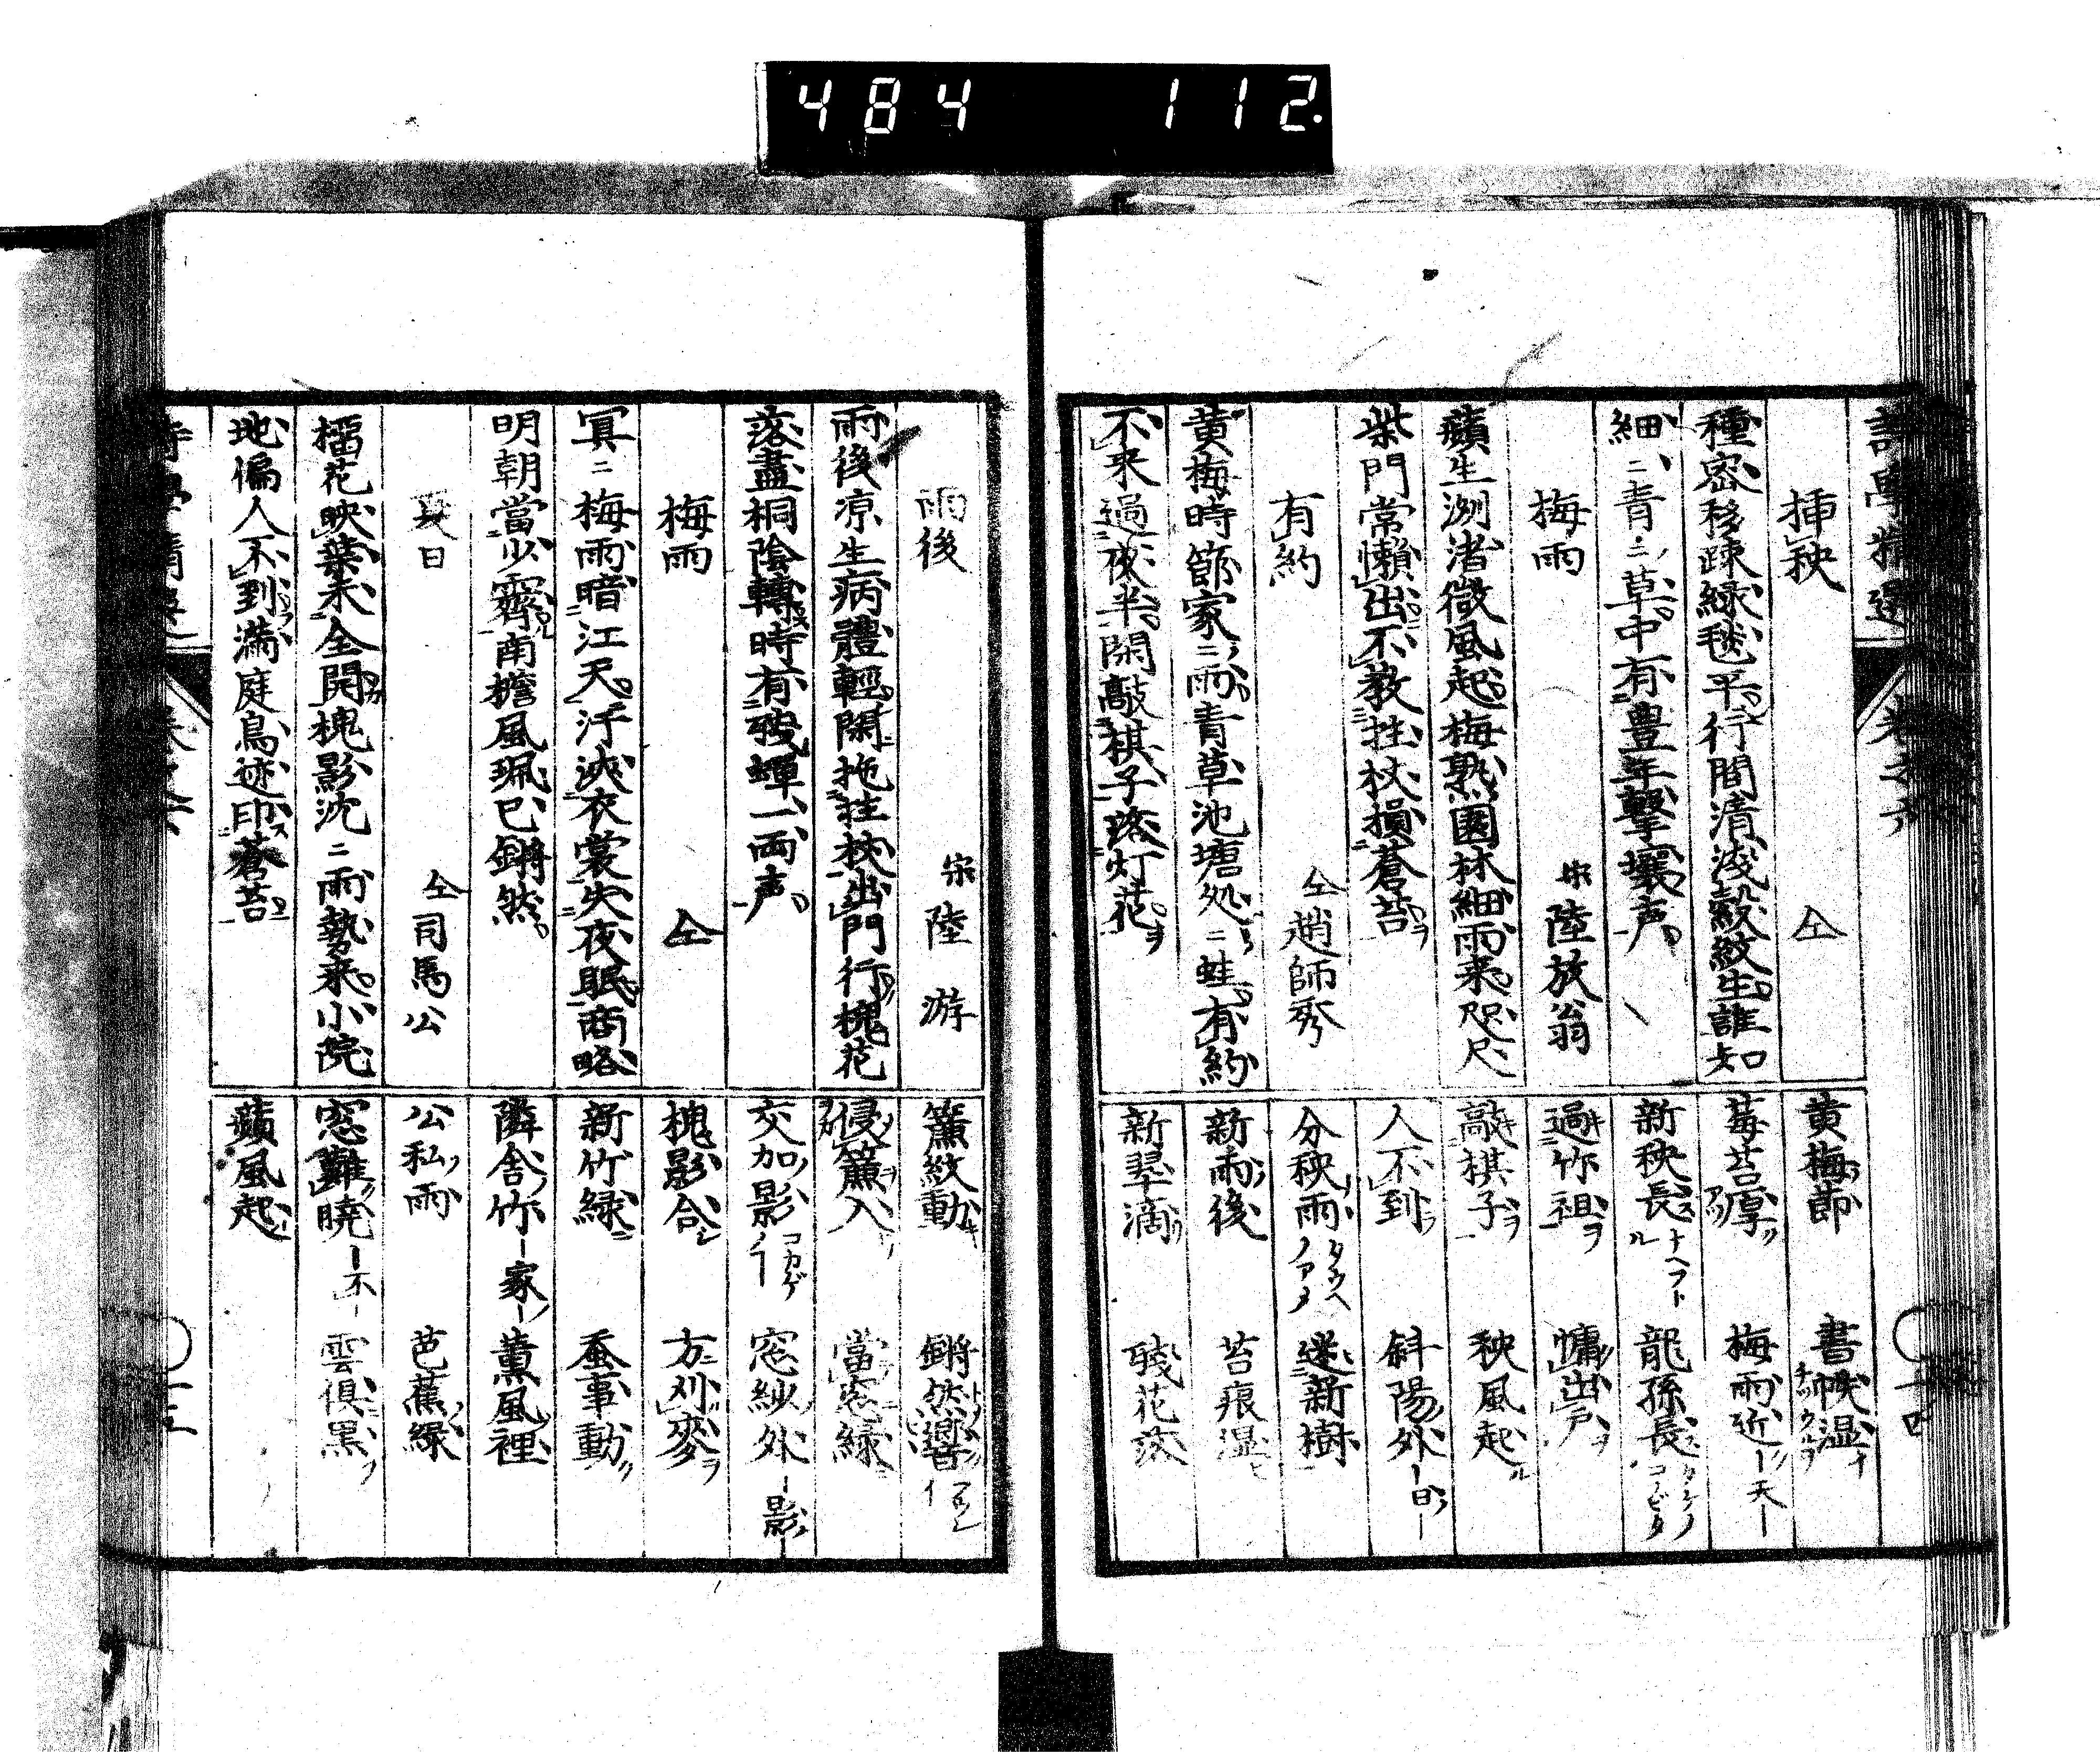 484 112.
挿秧 仝
種密移踈緑毯平行間清浅縠紋生誰知
細ニ青ニ草中有豊年撃壤声
梅雨 宋陸放翁
蘋生洲渚微風起梅熟園林細雨来咫尺
柴門常懶出不教拄杖損蒼苔
有約 仝趙師秀
黄梅時節家ニ雨青草池塘処ニ蛙有約
不来過夜半閑敲棋子落灯花
黄梅節 書帙湿
莓苔厚 梅雨近ー天ー
新秧長 龍孫長
過竹祖 慵出戸
敲棋子 秧風起
人不到 斜陽外ー日ー
分秧雨 タウヘノアメ 迷新樹
新雨後 苔痕湿
新翠滴 残花落
雨後 宋陸游
雨後凉生病體輕閑拖拄杖出門行槐花
落盡桐陰轉時有残蝉一両声
梅雨 仝
冥ニ梅雨暗江天汗浹衣裳失夜眠商略
明朝當少霽南檐風珮已鏘然
夏日 仝司馬公
榴花映葉未全開槐影沈ニ雨勢来小院
地偏人不到満庭鳥迹印蒼苔
簾紋動 鏘然響
侵簾入 當窓緑
交加影 コカゲノー 窓紗外ー影ー
槐影合 方刈麥
新竹緑 蚕事動
隣舎竹ー家ー 薫風裡
公私雨 芭蕉緑
窓難暁ー不ー 雲倶黒
蘋風起